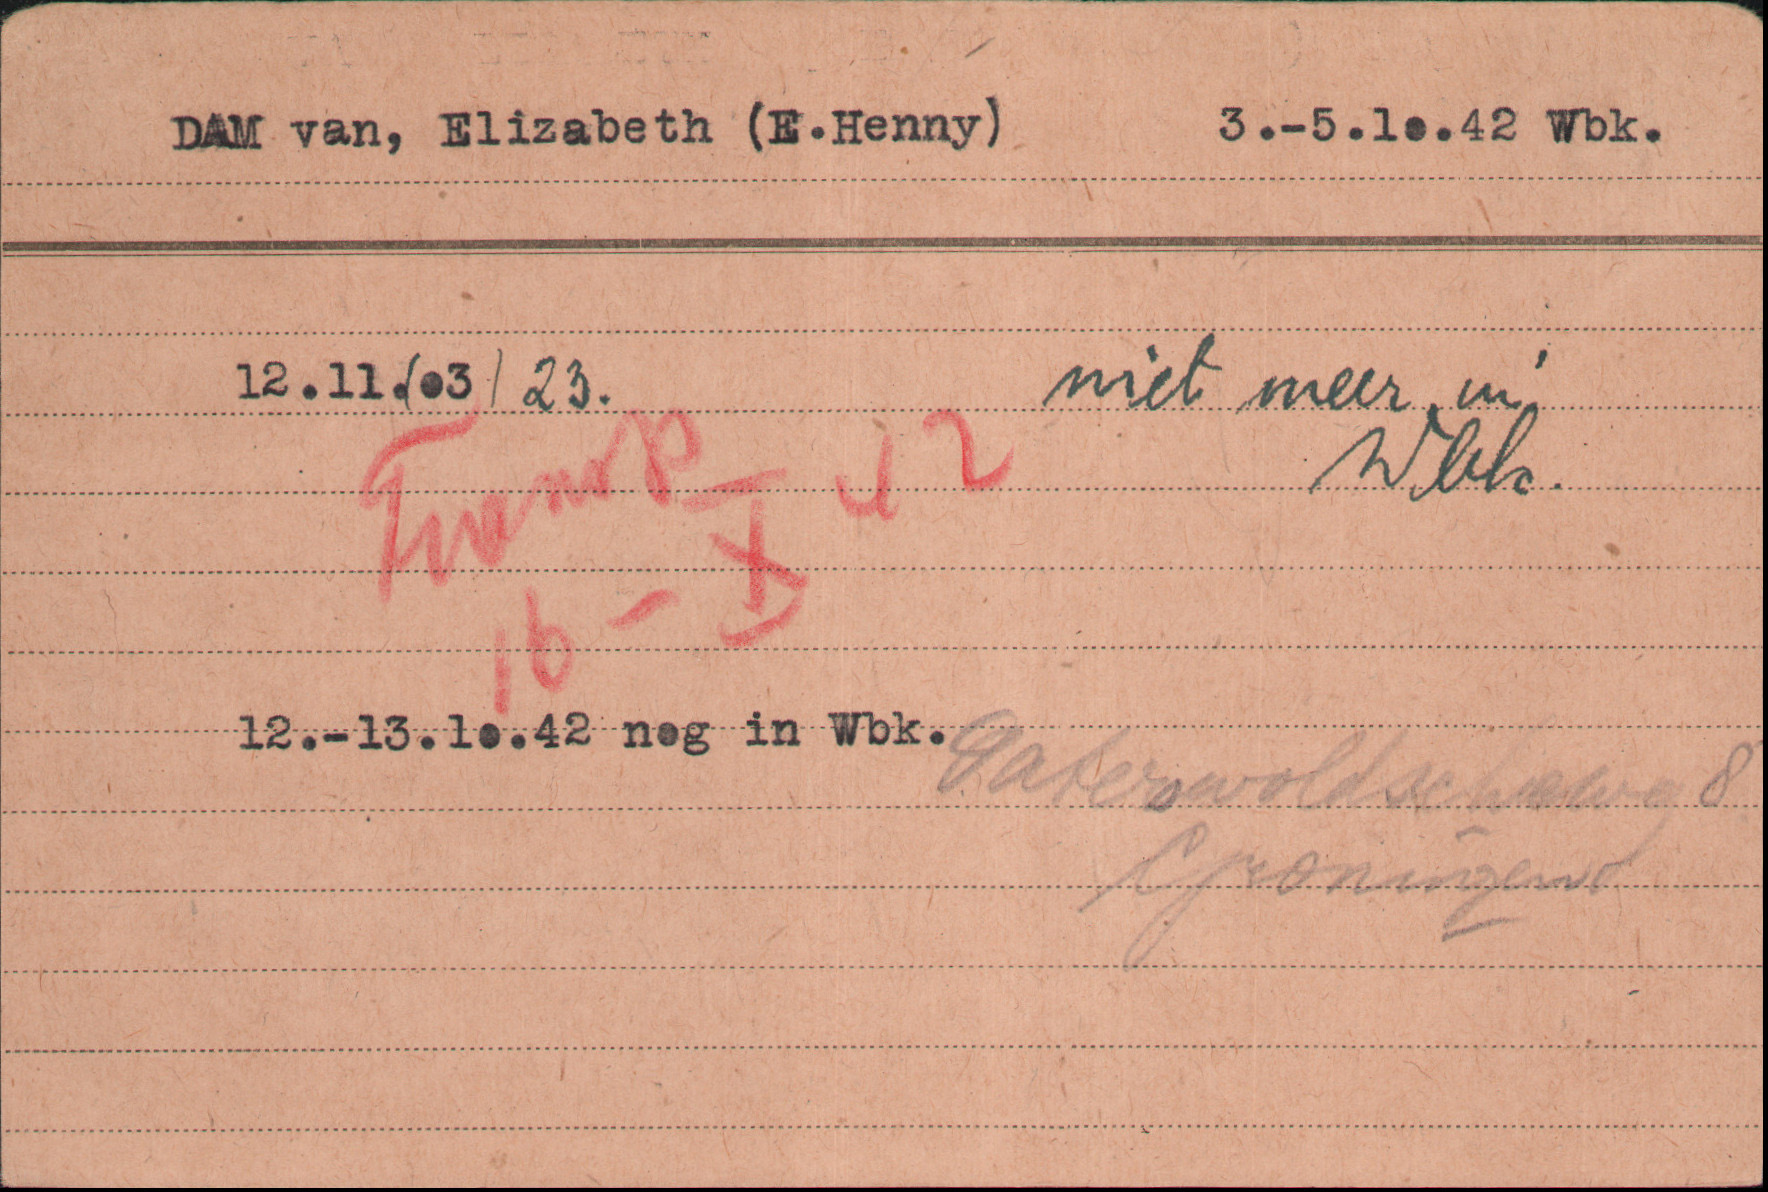 DAM van, Elizabeth (E.Henny) 3.-5.10.42 Wbk.
12.11.(03) 23. niet meer in
Wbk.
Transp 42
16 - X
12.-13.10.42 nog in Wbk.
Paterswoldscheweg 8
Groningen